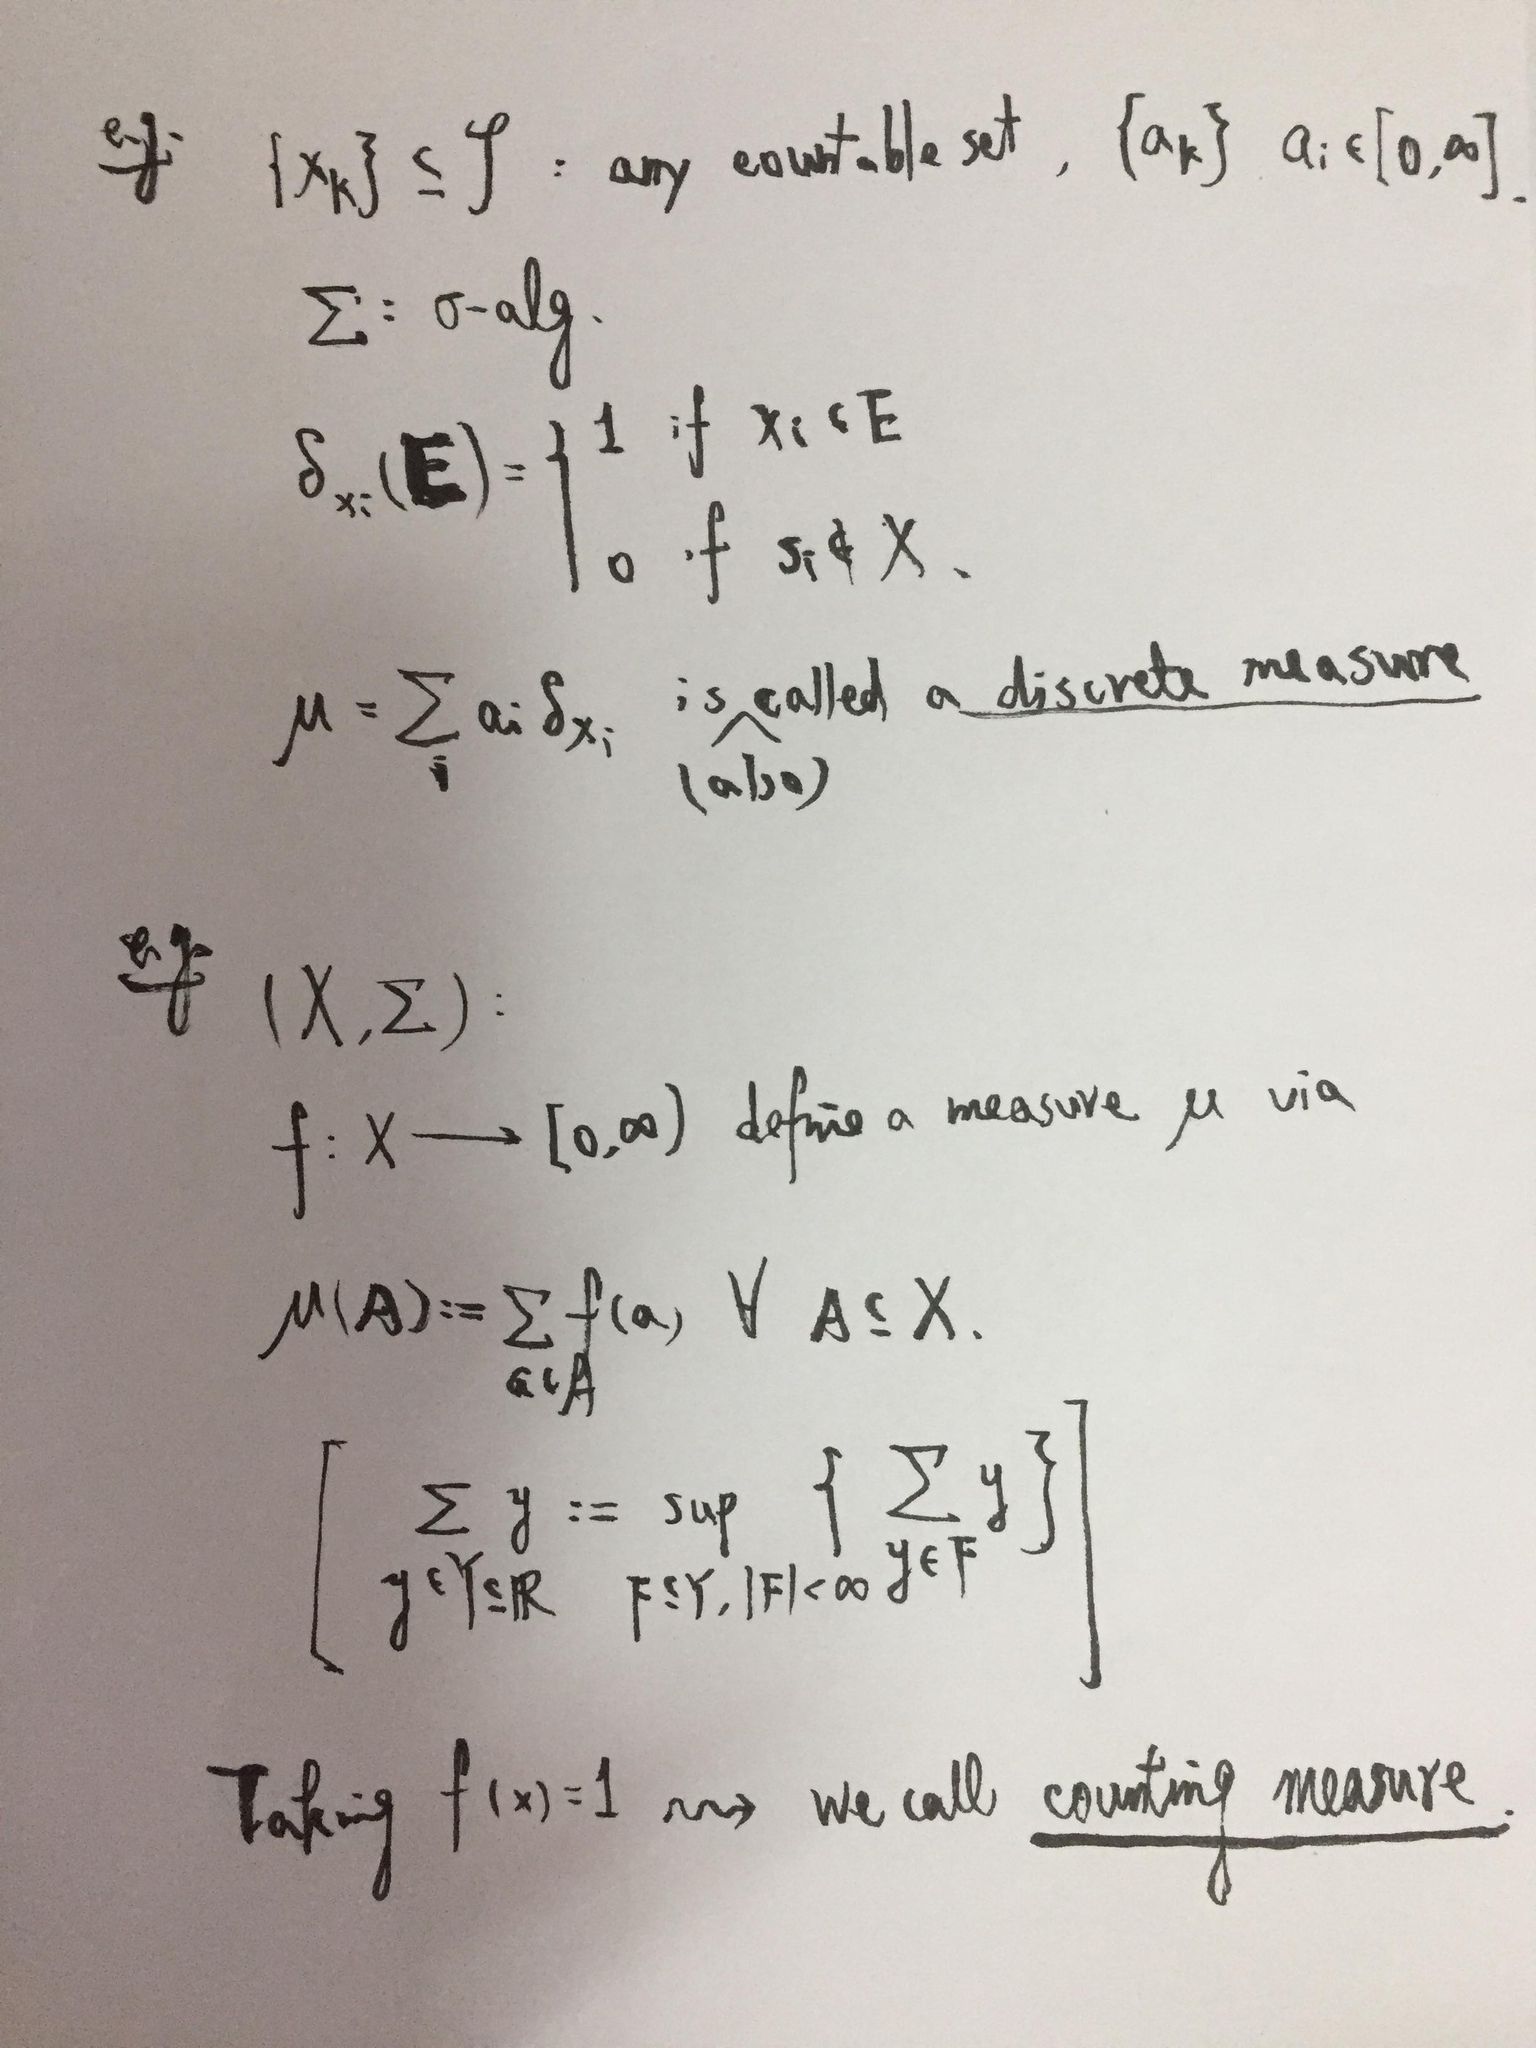 e.g. {x_k} ⊆ 𝒮 : any countable set, {a_k} a_i ∈ [0,∞].
Σ : σ-alg.
δ_{x_i}(E) = { 1 if x_i ∈ E
0 if s_i ∉ X.
μ = Σ_i a_i δ_{x_i} is called a discrete measure
(also)
e.g. (X, Σ) :
f : X ⟶ [0,∞) define a measure μ via
μ(A) := Σ_{a∈A} f(a) ∀ A ⊆ X.
[ Σ_{y∈Y⊆ℝ} y := sup_{F⊆Y, |F|<∞} { Σ_{y∈F} y } ]
Taking f(x)=1 ⇝ we call counting measure.